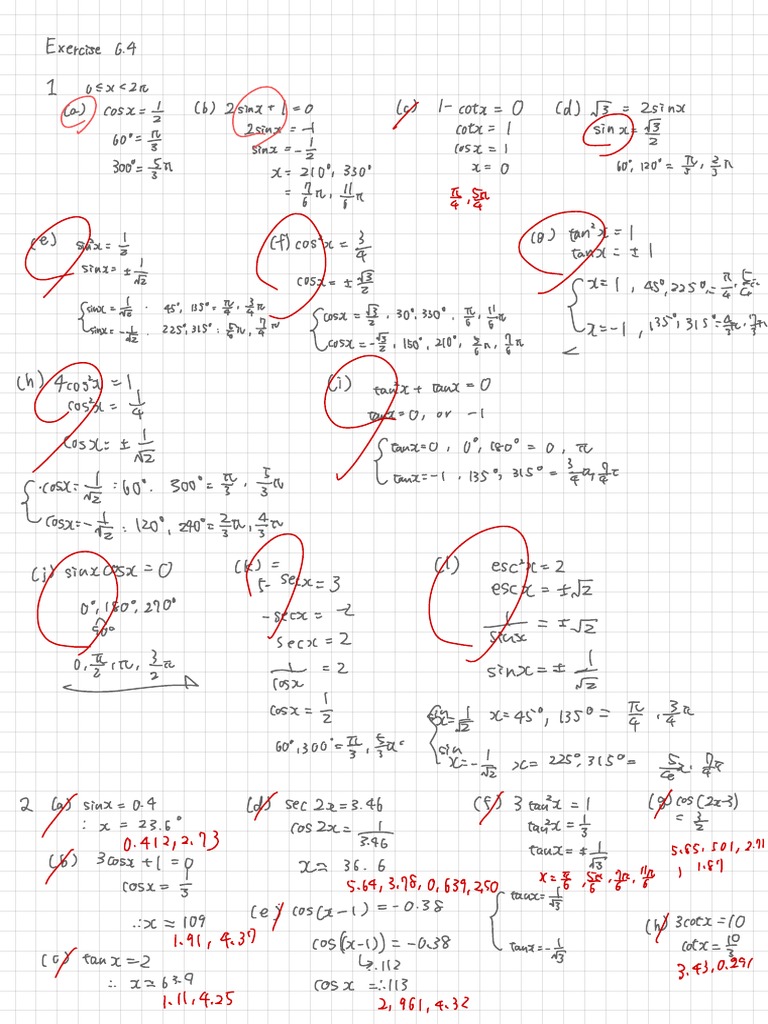 Exercise 6.4
1 0≤x<2π
(a) cosx = 1/2
60° = π/3
300° = 5/3 π
(b) 2sinx + 1 = 0
2sinx = -1
sinx = -1/2
x = 210°, 330°
= 7/6 π, 11/6 π
(c) 1 - cotx = 0
cotx = 1
cosx = 1
x = 0
π/4, 5π/4
(d) √3 = 2sinx
sinx = √3/2
60°, 120° = π/3, 2/3 π
(e) sin²x = 1/2
sinx = ± 1/√2
sinx = 1/√2 . 45°, 135° = π/4, 3/4 π
sinx = -1/√2 . 225°, 315° : 5/4 π, 7/4 π
(f) cos²x = 3/4
cosx = ± √3/2
cosx = √3/2, 30°, 330° . π/6, 11/6 π
cosx = -√3/2, 150°, 210°, 5/6 π, 7/6 π
(g) tan²x = 1
tanx = ± 1
x = 1, 45°, 225° = π/4,
x = -1, 135°, 315° =
(h) 4cos²x = 1
cos²x = 1/4
cosx = ± 1/√2
cosx = 1/√2 : 60°. 300° = π/3, 5/3 π
cosx = -1/√2 : 120°, 240° = 2/3 π, 4/3 π
(i) tan²x + tanx = 0
tanx = 0, or -1
tanx = 0, 0°, 180° = 0, π
tanx = -1, 135°, 315° = 3/4 π, 7/4 π
(j) sinx cosx = 0
0°, 180°, 270°
90°
0, π/2, π, 3/2 π
(k) =
5 - secx = 3
- secx = -2
secx = 2
1/cosx = 2
cosx = 1/2
60°, 300° = π/3, 5/3 π
(l) esc²x = 2
escx = ±√2
1/sinx = ±√2
sinx = ± 1/√2
sin x = 1/√2 x = 45°, 135° = π/4, 3/4 π
sin x = -1/√2 x = 225°, 315° = 7/4 π
2 (a) sinx = 0.4
∴ x = 23.6°
0.412, 2.73
(b) 3cosx + 1 = 0
cosx = 1/3
∴ x ≈ 109
1.91, 4.37
(c) tanx = 2
∴ x ≈ 63.9
1.11, 4.25
(d) sec 2x = 3.46
cos 2x = 1/3.46
x ≈ 36.6
5.64, 3.78, 0,639, 2.50
(e) cos(x-1) = -0.38
cos(x-1)) = -0.38
112
cos x = ∴113
2,961, 4.32
(f) 3 tan²x = 1
tan²x = 1/3
tanx = ± 1/√3
x = π/6, 5π/6, 7π/6, 11π/6
tanx = 1/√3
tanx = -1/√3
(g) cos(2x-3)
= 3/2
5.85, 5.01, 2.71
, 1.87
(h) 3cotx = 10
cotx = 10/3
3.43, 0.291